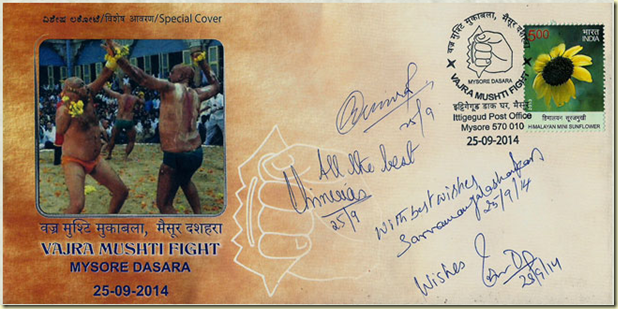 ವಿಶೇಷ ಲಕೋಟೆ/विशेष आवरण/Special Cover
वज्र मुश्टि मुकाबला, मैसूर दशहरा
VAJRA MUSHTI FIGHT
MYSORE DASARA
25-09-2014
वज्र मुश्टि मुकाबला, मैसूर दशहरा
MYSORE DASARA
VAJRA MUSHTI FIGHT
इट्टिगेगूड डाक घर, मैसूर
Ittigegud Post Office
Mysore 570 010
25-09-2014
500
भारत
INDIA
हिमालयन सूरजमुखी
HIMALAYAN MINI SUNFLOWER
25/9
All the best
25/9
With best wishes
25/9/14
Wishes
25/9/14